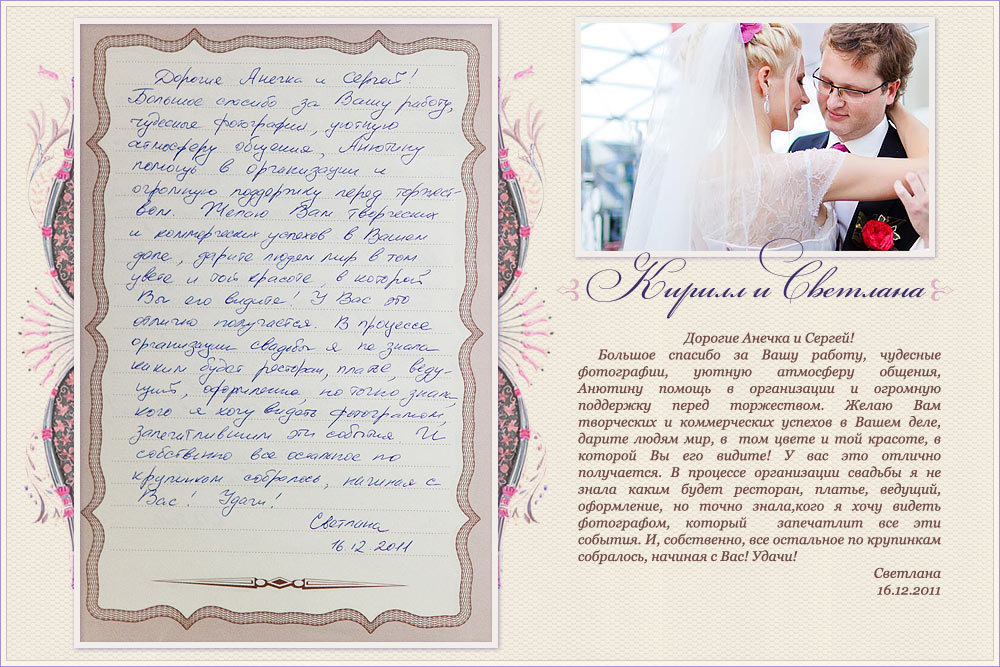 Дорогие Анечка и Сергей!
Большое спасибо за Вашу работу,
чудесные фотографии, уютную
атмосферу общения, Анютину
помощь в организации и
огромную поддержку перед торжест-
вом. Желаю Вам творческих
и коммерческих успехов в Вашем
деле, дарите людям мир в том
цвете и той красоте, в которой
Вы его видите! У Вас это
отлично получается. В процессе
организации свадьбы я не знала
каким будет ресторан, платье, веду-
щий, оформление, но точно знала,
кого я хочу видеть фотографом,
запечатлившим эти события. И
собственно все остальное по
крупинкам собралось, начиная с
Вас! Удачи!
Светлана
16.12.2011
Кирилл и Светлана
Дорогие Анечка и Сергей!
Большое спасибо за Вашу работу, чудесные
фотографии, уютную атмосферу общения,
Анютину помощь в организации и огромную
поддержку перед торжеством. Желаю Вам
творческих и коммерческих успехов в Вашем деле,
дарите людям мир, в том цвете и той красоте, в
которой Вы его видите! У вас это отлично
получается. В процессе организации свадьбы я не
знала каким будет ресторан, платье, ведущий,
оформление, но точно знала,кого я хочу видеть
фотографом, который запечатлит все эти
события. И, собственно, все остальное по крупинкам
собралось, начиная с Вас! Удачи!
Светлана
16.12.2011